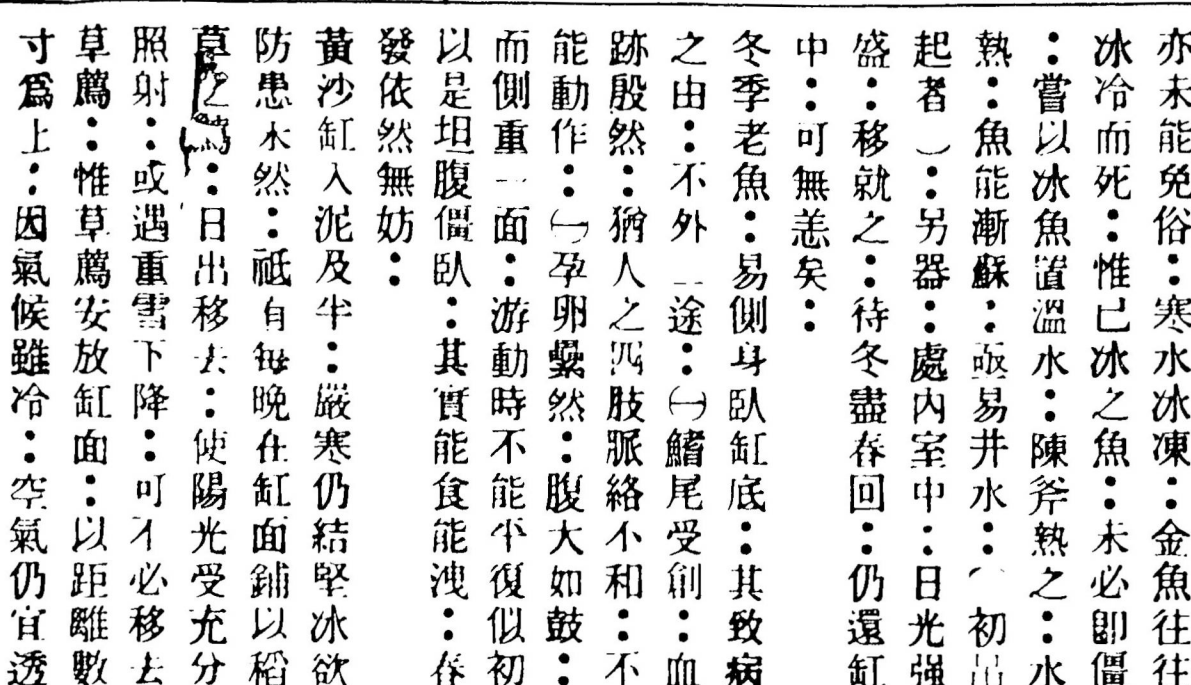 亦未能免俗：寒水冰凍：金魚往往
冰冷而死：惟已冰之魚：未必即僵
：嘗以冰魚置溫水：陳斧熱之：水
熱：魚能漸蘇：亟易井水：（初出
起者）：另器：處內室中：日光强
盛：移就之：待冬盡春回：仍還缸
中：可無恙矣：
冬季老魚：易側身臥缸底：其致病
之由：不外二途：㈠鰭尾受創：血
跡殷然：猶人之四肢脈絡不和：不
能動作：㈡孕卵纍然：腹大如鼓：
而側重一面：游動時不能平復似初
以是坦腹僵臥：其實能食能洩：春
發依然無妨：
黃沙缸入泥及半：嚴寒仍結堅冰欲
防患未然：祗自每晚在缸面鋪以稻
草：日出移去：使陽光受充分
照射：或遇重雪下降：可不必移去
草薦：惟草薦安放缸面：以距離數
寸爲上：因氣候雖冷：空氣仍宜透